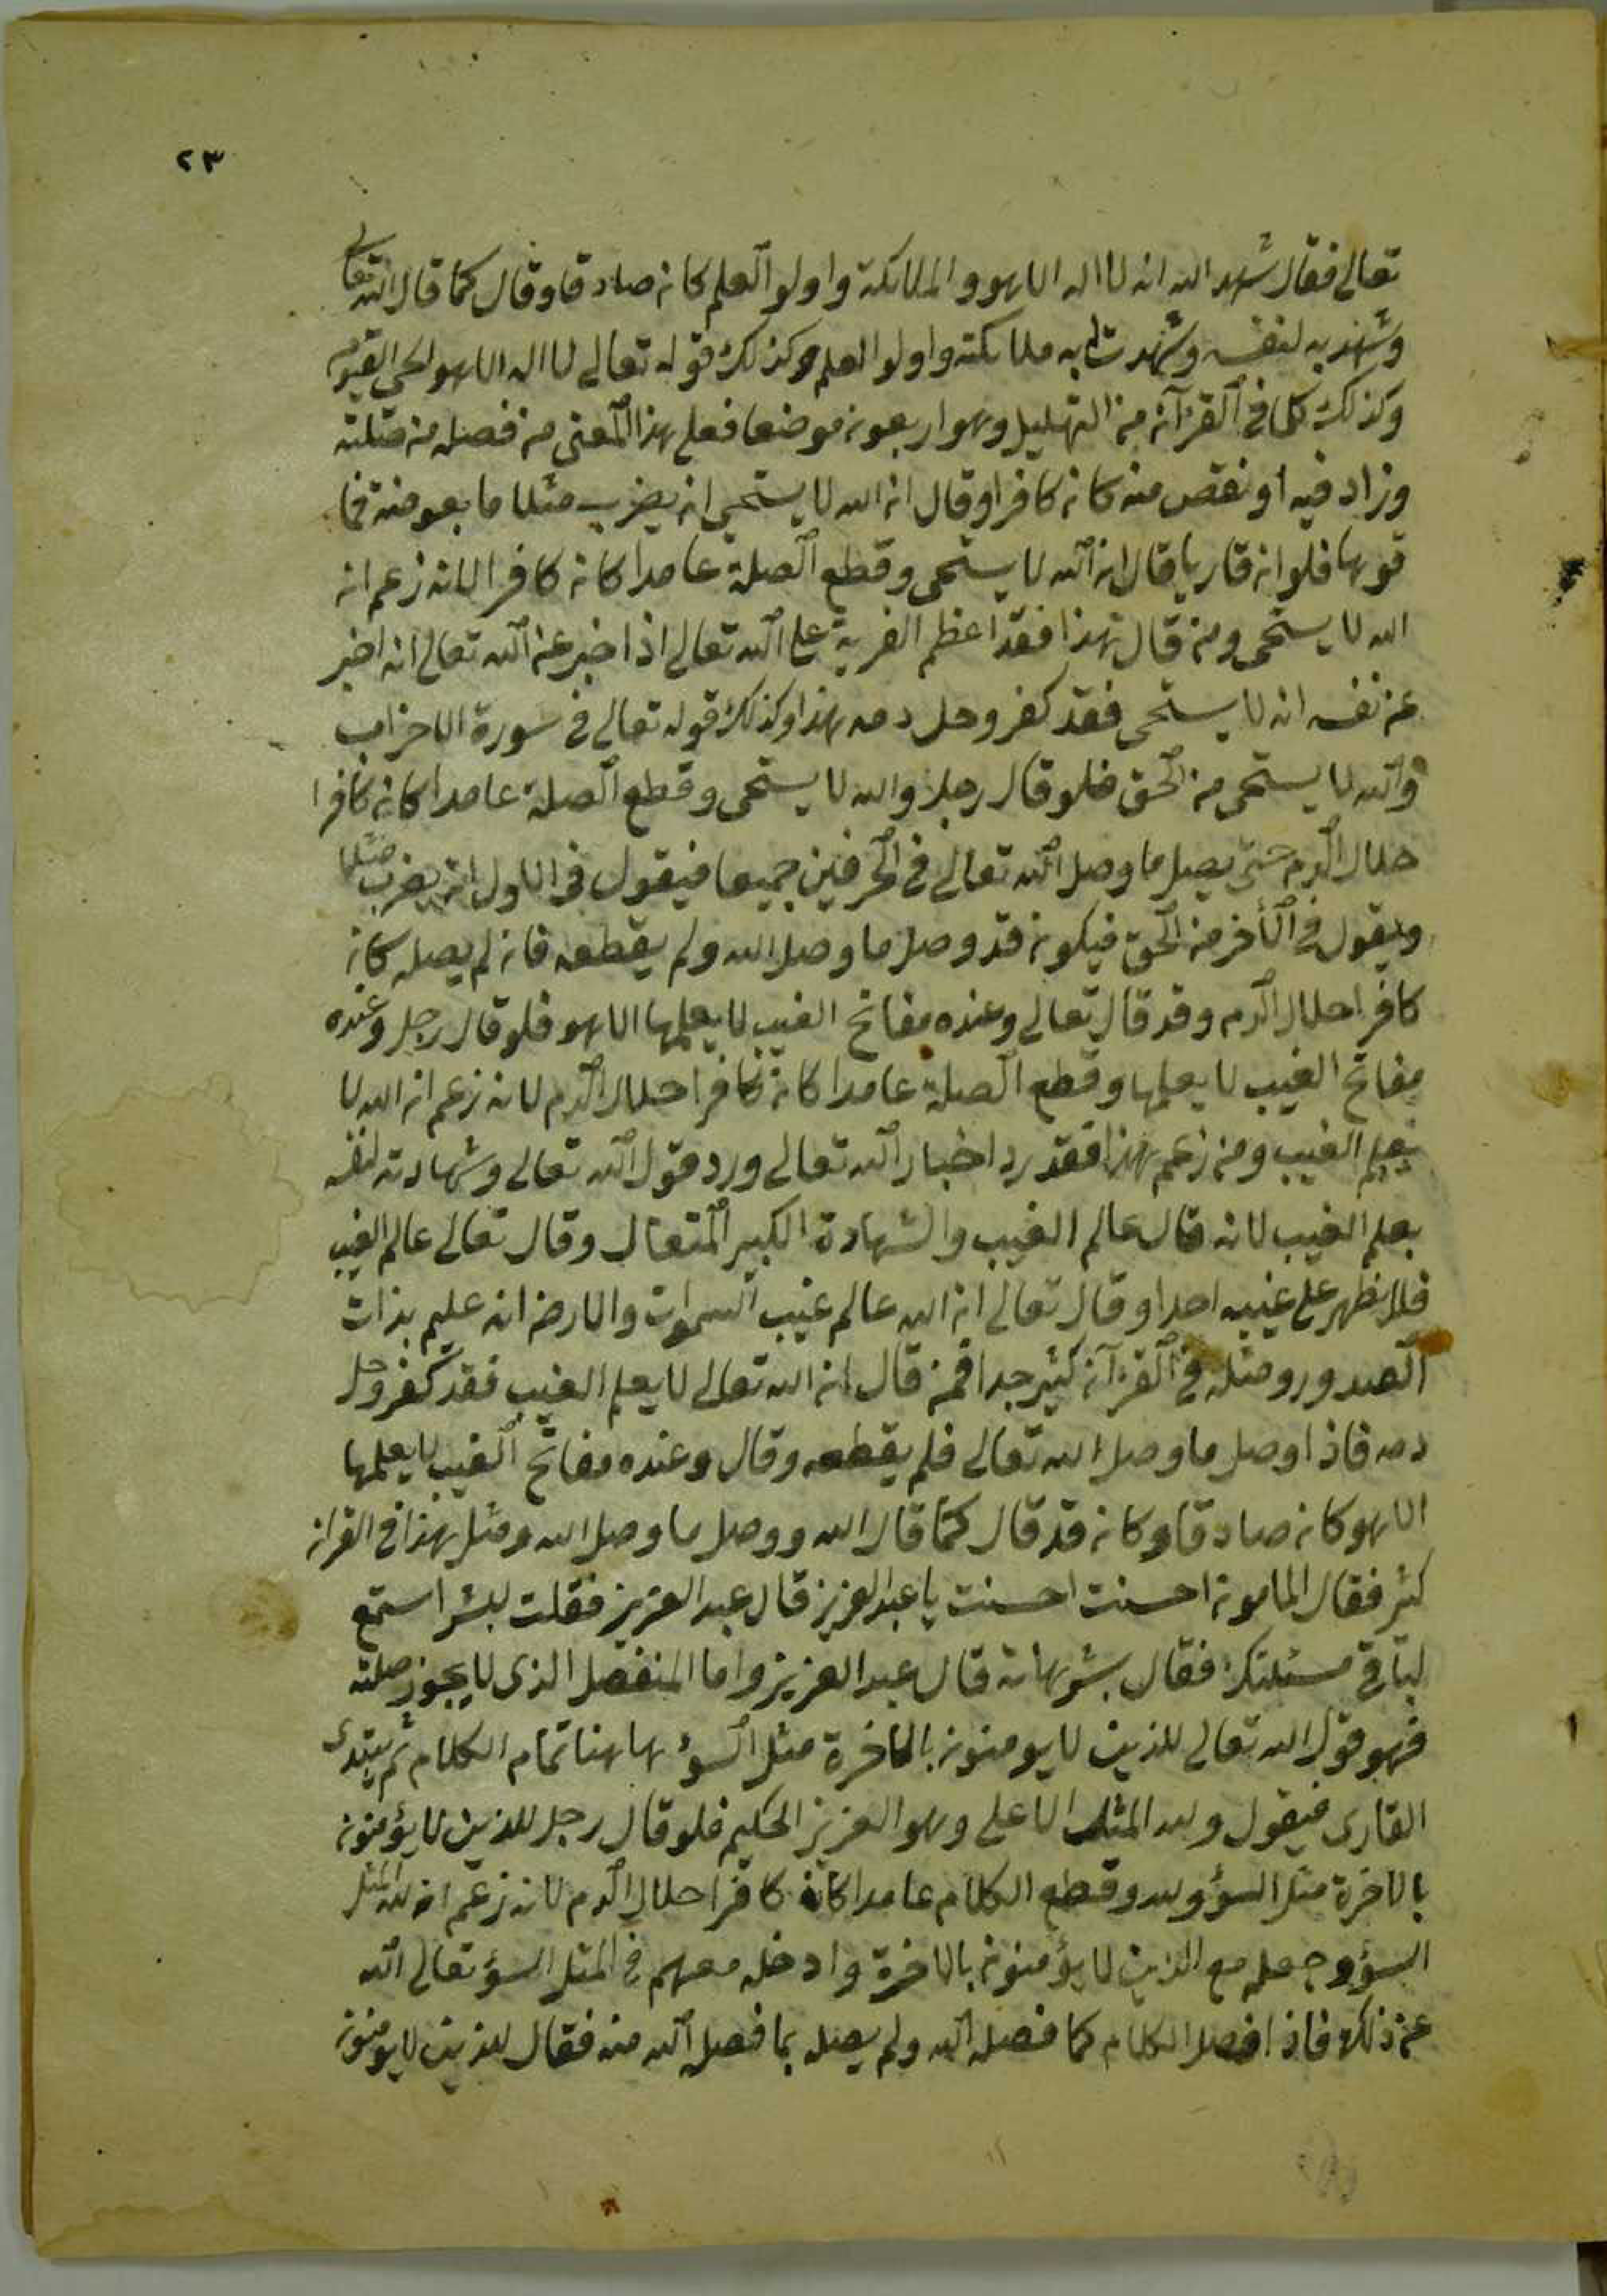 ٢٣
تعالى فقال شهد الله انه لا اله الا هو والملائكة واولو العلم كان صادقا وقال كما قال الله تعالى
وشهد به لنفسه وشهدت له به ملائكته واولو العلم وكذلك قوله تعالى لا اله الا هو الحي القيوم
وكذلك كلما في القرآن من التهليل وهو اربعون موضعا فعلى هذا المعنى من فصله من صلته
وزاد فيه او نقص منه كان كافرا وقال ان الله لا يستحي ان يضرب مثلا ما بعوضة فما
فوقها فلو ان قاريا قال ان الله لا يستحى وقطع الصلة عامدا كان كافرا لانه زعم ان
الله لا يستحى ومن قال هذا فقد اعظم الفرية على الله تعالى اذ اخبر عن الله تعالى انه اخبر
عن نفسه انه لا يستحى فقد كفر وحل دمه بهذا وكذلك قوله تعالى في سورة الاحزاب
والله لا يستحى من الحق فلو قال رجل والله لا يستحى وقطع الصلة عامدا كان كافرا
حلال الدم حتى يصل ما وصل الله تعالى في الحرفين جميعا فيقول في الاول ان يضرب مثلا
ويقول في الآخر من الحق فيكون قد وصل ما وصل الله ولم يقطعه فان لم يصله كان
كافرا حلال الدم وقد قال تعالى وعنده مفاتح الغيب لا يعلمها الا هو فلو قال رجل وعنده
مفاتح الغيب لا يعلمها وقطع الصلة عامدا كان كافرا حلال الدم لانه زعم ان الله لا
يعلم الغيب ومن زعم هذا فقد رد اخبار الله تعالى ورد قول الله تعالى وشهادته لنفسه
بعلم الغيب لانه قال عالم الغيب والشهادة الكبير المتعال وقال تعالى عالم الغيب
فلا يظهر على غيبه احدا وقال تعالى ان الله عالم غيب السموات والارض انه عليم بذات
الصدور ومثله في القرآن كثير جدا فمن قال ان الله تعالى لا يعلم الغيب فقد كفر وحل
دمه فاذا وصل ما وصل الله تعالى فلم يقطعه وقال وعنده مفاتح الغيب لا يعلمها
الا هو كان صادقا وكان قد قال كما قال الله ووصل ما وصل الله ومثل هذا في القران
كثير فقال المامون احسنت احسنت يا عبد العزيز قال عبد العزيز فقلت لبشر استمع
لباقي مسئلتك فقال بشر هاته قال عبد العزيز واما المنفصل الذى لا يجوز صلته
فهو قول الله تعالى للذين لا يومنون بالآخرة مثل السؤ ها هنا تمام الكلام ثم يبتدى
القارى فيقول ولله المثل الاعلى وهو العزيز الحكيم فلو قال رجل للذين لا يؤمنون
بالاخرة مثل السؤ ولله وقطع الكلام عامدا كان كافرا حلال الدم لانه زعم ان لله المثل
السؤ وجعله مع الذين لا يؤمنون بالاخرة وادخله معهم في المثل السؤ تعالى الله
عن ذلك فاذا فصل الكلام كما فصله الله ولم يصله بما فصل الله منه فقال للذين لا يومنون